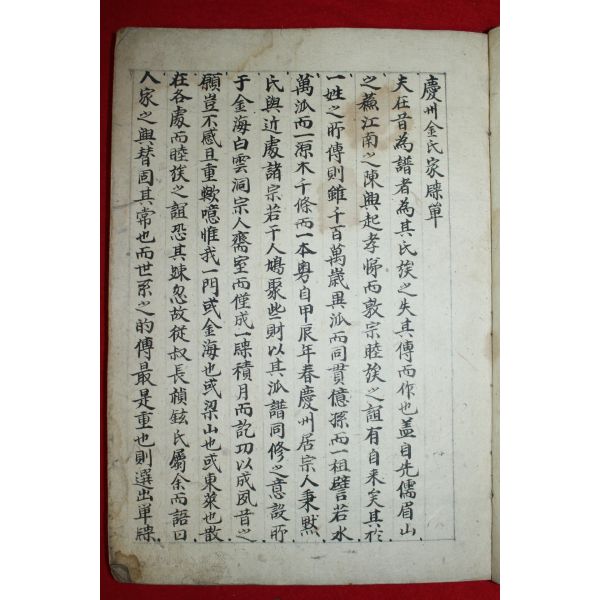 慶州金氏家牒單
夫在昔為譜者為其氏族之失其傳而作也盖自先儒眉山
之蘇江南之陳興起孝悌而敦宗睦族之誼有自来矣其於
一姓之所傳則雖千百萬歲異派而同貫億孫而一祖譬若水
萬派而一源木千條而一本粤自甲辰年春慶州居宗人秉默
氏與近處諸宗若干人鳩聚些財以其派譜同修之意設所
于金海白雲洞宗人齋室而僅成一牒積月而訖功以成夙昔之
願豈不感且重歟噫惟我一門或金海也或梁山也或東萊也散
在各處而睦族之誼恐其踈忽故從叔長楨鉉氏屬余而語曰
人家之興替固其常也而世系之的傳最是重也則選出單牒